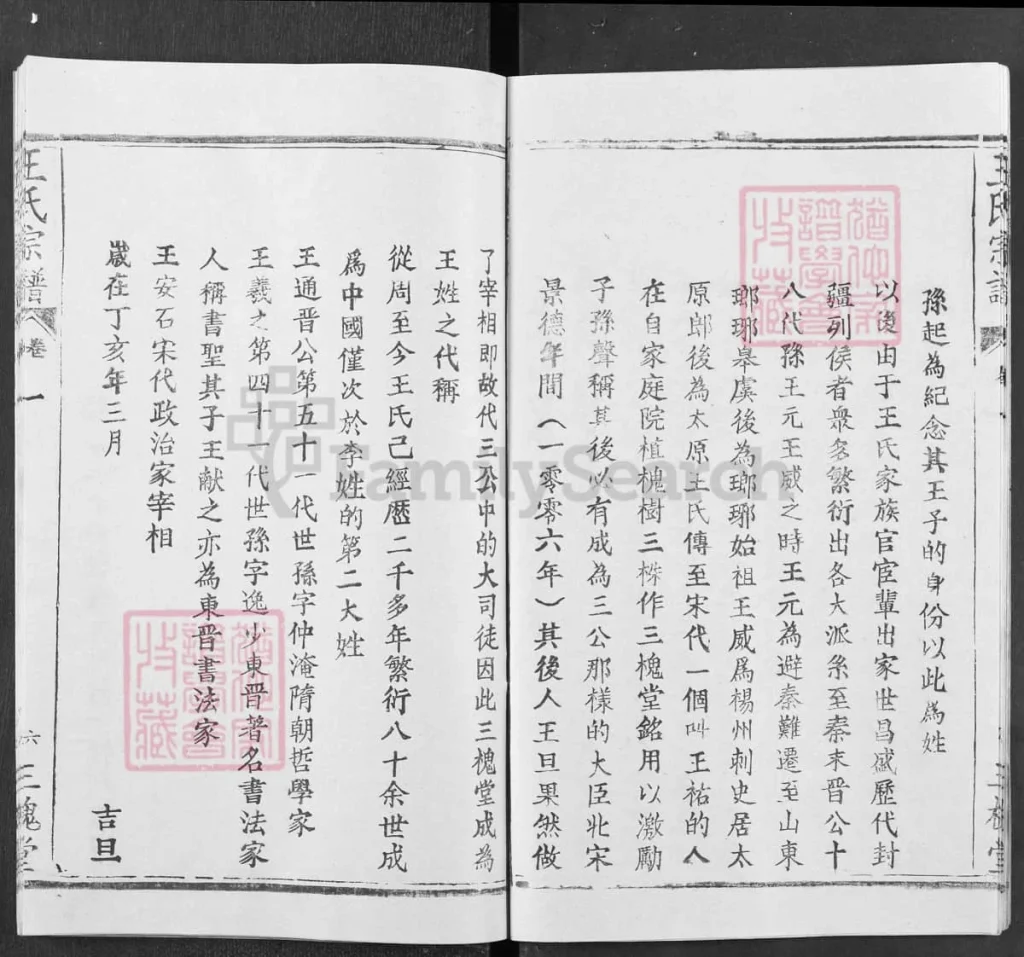 王氏宗譜
三槐堂
孫起為紀念其王子的身份以此為姓
以後由于王氏家族官宦輩出家世昌盛歷代封
疆列侯者衆多繁衍出各大派系至秦末晋公十
八代孫王元王威之時王元為避秦難遷至山東
瑯琊皋虞後為瑯琊始祖王威爲楊州刺史居太
原郎後為太原王氏傳至宋代一個叫王祐的人
在自家庭院植槐樹三株作三槐堂銘用以激勵
子孫聲稱其後必有成為三公那樣的大臣北宋
景德年間（一零零六年）其後人王旦果然做
了宰相即故代三公中的大司徒因此三槐堂成為
王姓之代稱
從周至今王氏己經歷二千多年繁衍八十余世成
爲中國僅次於李姓的第二大姓
王通晋公第五十一代世孫字仲淹隋朝哲學家
王羲之第四十一代世孫字逸少東晋著名書法家
人稱書聖其子王献之亦為東晋書法家
王安石宋代政治家宰相
歲在丁亥年三月
吉旦
王氏宗譜
卷一
六
三槐堂
猶他家譜學會收藏
猶他家譜學會收藏
FamilySearch